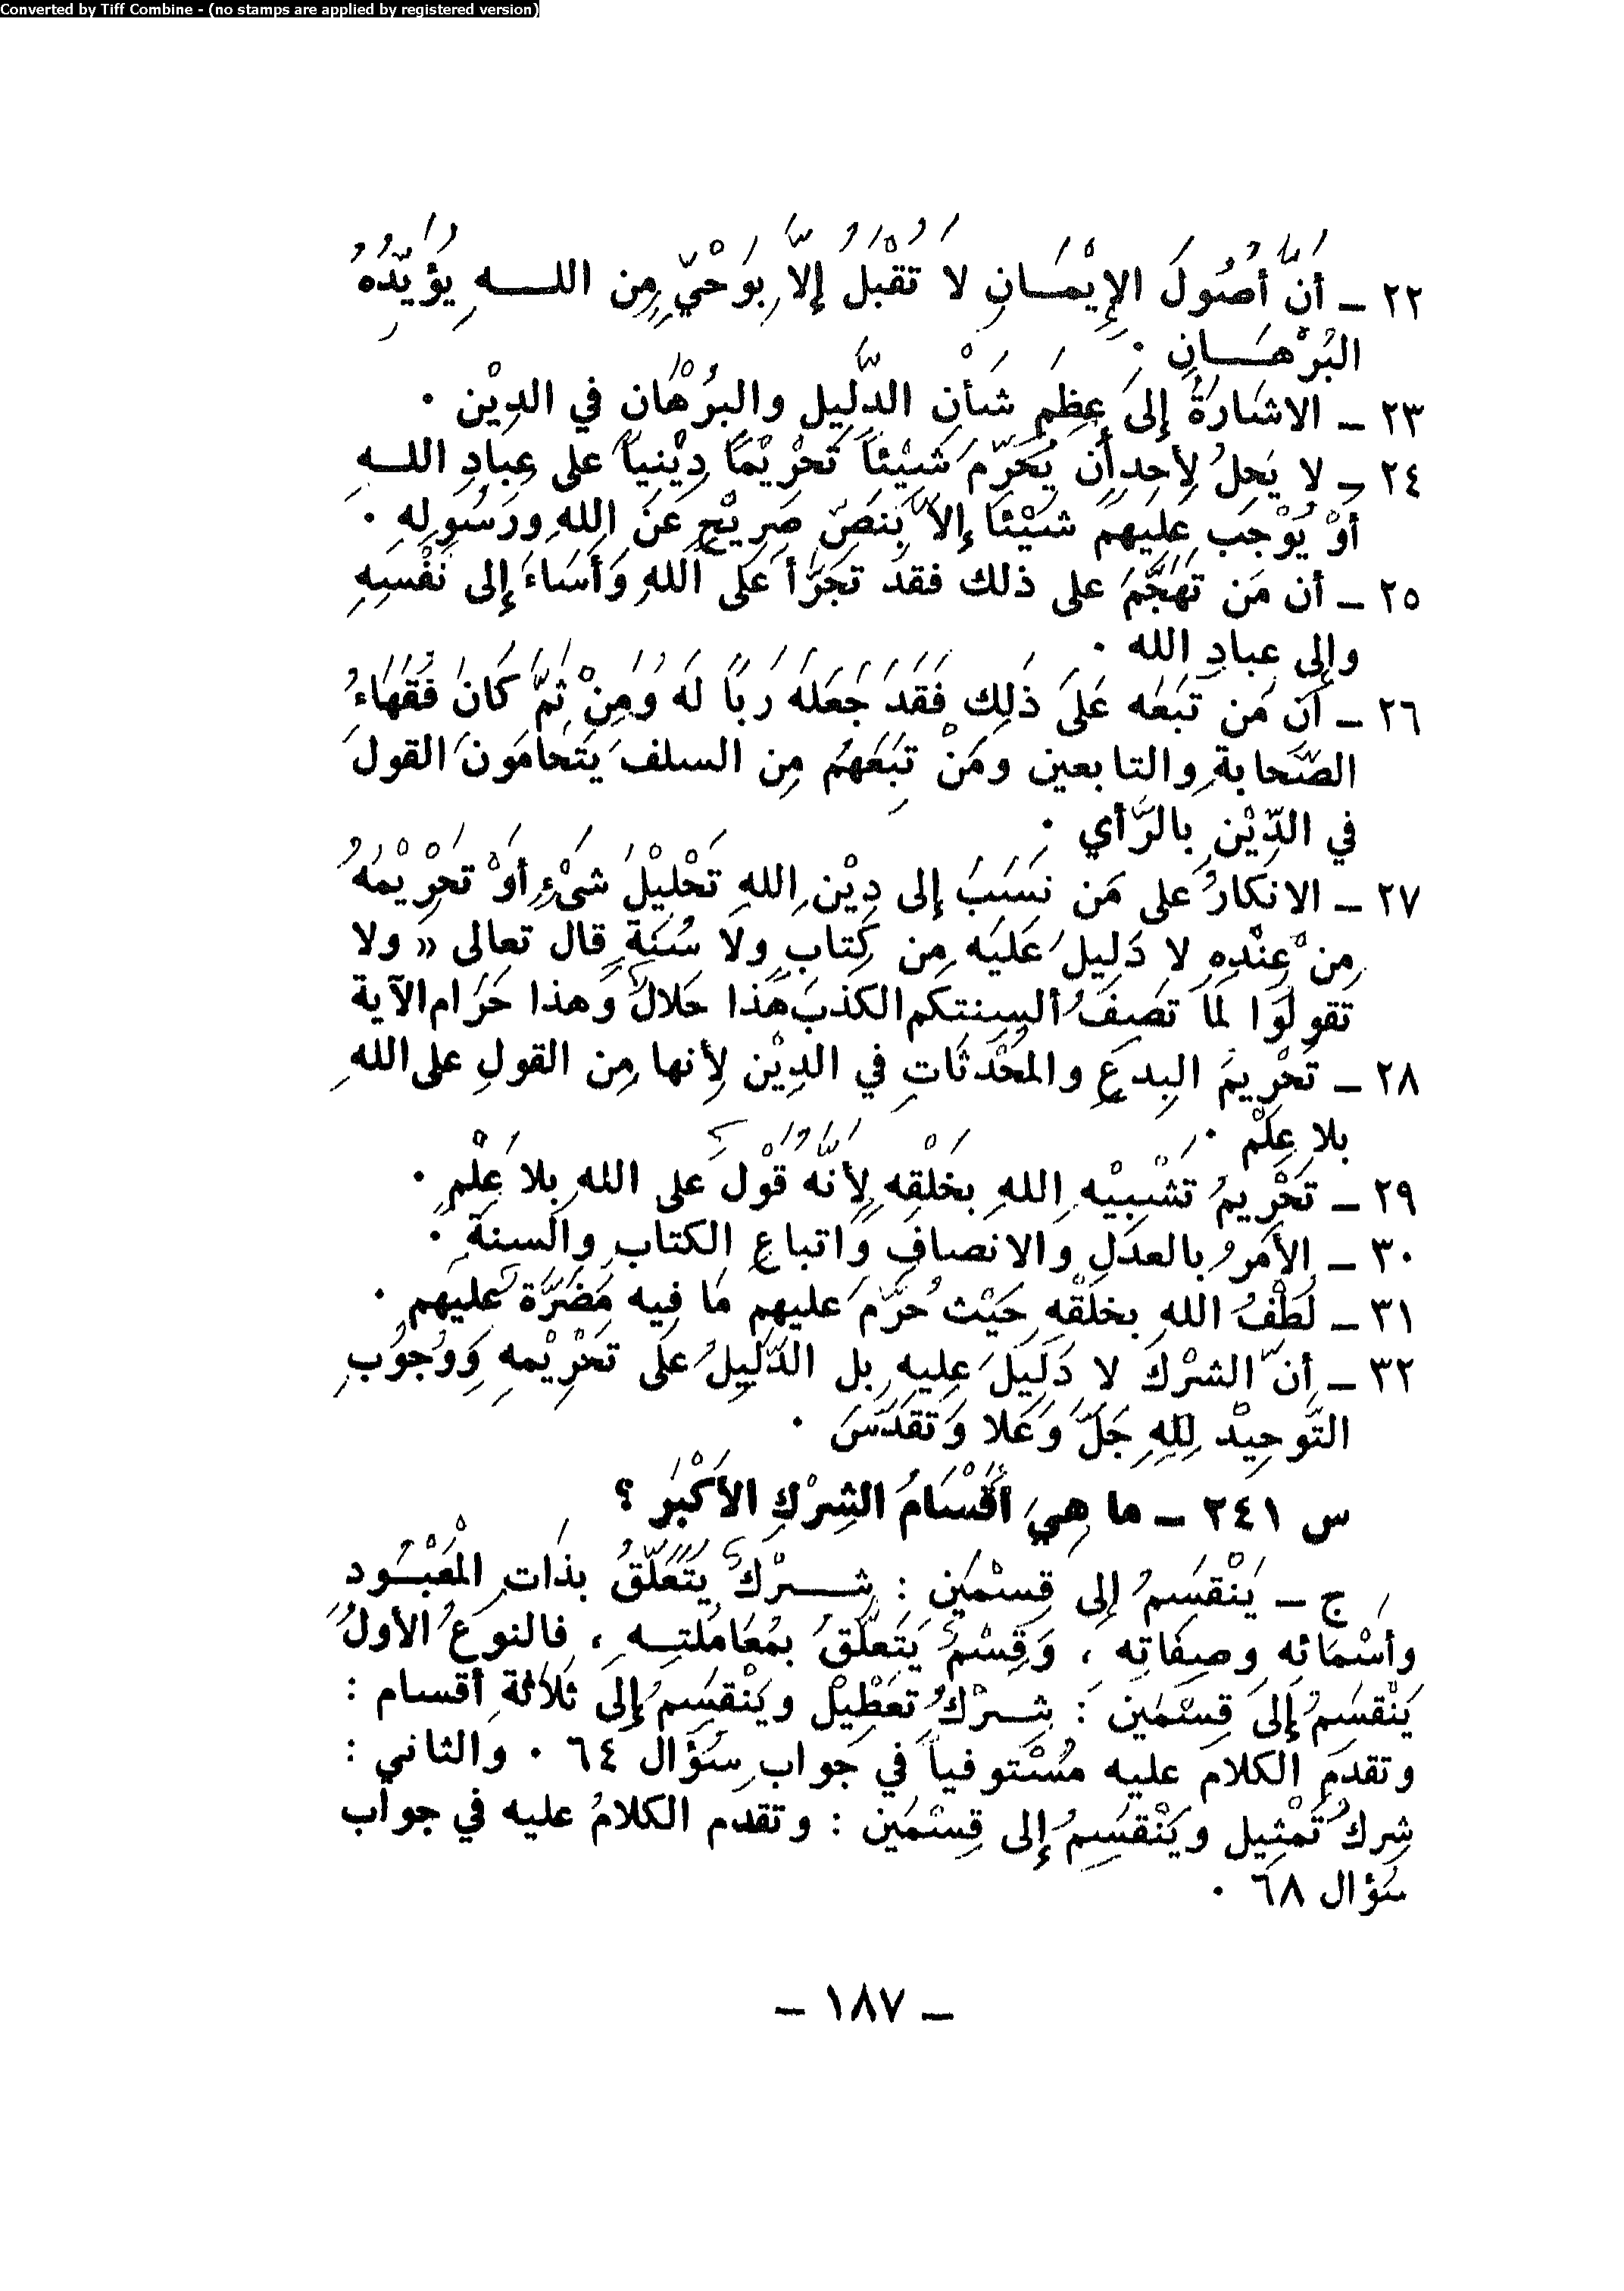 Converted by Tiff Combine - (no stamps are applied by registered version)
٢٢ – أَنَّ أُصُولَ الإِيْمَــانِ لا تُقْبَلُ إِلاَّ بِوَحْيٍّ مِن اللــــهِ يُؤَيِّدُهُ
البُرْهَــانِ .
٢٣ – الاشَارَةُ إِلىَ عِظَمِ شَأْنِ الدَّلِيلِ والبُرْهَانِ في الدِيْنِ .
٢٤ – لا يَحِلُ لِأَحِدٍ أَن يُحَرِّمَ شَيْئاً تَحْرِيْمًا دِيْنِياً على عِبادِ اللــهِ
أَوْ يُوْجَبِ عَلِيهمْ شَيْئاً إِلاَّ بِنَصٍّ صَرِيْحٍ عَنَ اللهِ ورَسُولِهِ .
٢٥ – أن مَن تَهَجَّمَ على ذلك فقد تَجَرَّأَ عَلَى اللهِ وَأَسَاءَ إِلى نَفْسَهِ
وإِلى عبادِ الله .
٢٦ – أَنَ مَن تَبَعَه عَلىَ ذَلِك فَقَدَ جَعَلَهَ رَباً لَه وَمِنْ ثَمَّ كَانَ فُقَهَاءُ
الصَّحابةِ والتابعين ومَنْ تَبِعَهمُ مِن السلف يَتَحَامَونَ القولَ
في الدِّيْنِ بالرَّأي .
٢٧ – الانكارُ على مَن نَسَبَ إِلى دِيْنِ اللهِ تَحْلِيْلَ شَىْءٍ أَوْ تَحْرِيْمُهُ
مِنْ عِنْدِهِ لا دَلِيلَ عَلَيَه مِن كِتابٍ ولا سُنَةٍ قال تعالى « ولا
تقولُوا لمَا تَصِفُ أَلسِنتكم الكذبَ هَذا حَلالٌ وَهذا حَرَام الآية
٢٨ – تَحْرِيمَ البِدعِ والمحْدثَاتِ في الدِيْن لِأَنها مِن القولِ على اللهِ
بلا عِلْم .
٢٩ – تَحْرِيمُ تَشْبِيْهِ اللهِ بخَلْقِهِ لِأَنَّهُ قُوْل على اللهِ بِلا عِلْمٍ .
٣٠ – الأَمرُ بالعدلِ والانصافِ وَاتباعِ الكتابِ والسنةِ .
٣١ – لُطْفُ اللهِ بخلْقِهِ حَيْث حُرَّمَ عليهم مَا فيه مَضَرَّة عَليهم .
٣٢ – أَنَّ الشرْكَ لا دَلَيلَ عليهِ بل الدَّلَيِلُ عَلى تَحْرِيْمِهِ وَوُجُوُبِ
التَّوحِيْدِ لِلهِ جَلَّ وَعَلا وَتقَدَسَ .
س ٢٤١ – ما هِيَ أَقْسَامُ الشِرْكِ الأَكْبَرِ ؟
ج – يَنْقَسِمُ إِلى قِسْمَينِ : شِــــرْكٌ يَتَعَلَّقُ بذَاتِ المَعْبُــودِ
وأَسْمَائه وصِفَاتِه ، وَقِسْمٌ يَتَعَلَّقُ بمُعَامَلَتِــهِ ، فالنوعُ الأَولُ
يَنْقَسَمُ إِلىَ قِسْمَينِ : شِــرْكُ تعَطْيِلْ ويَنْقَسِمُ إِلَى ثَلاثةِ أَقسام :
وتقدمَ الكلام عليه مُسْتوفياً في جوابِ سَؤَال ٦٤ . والثاني :
شِركُ تَمْثِيل ويَنْقَسِمُ إِلى قِسْمَينِ : وتقدم الكلامُ عليه في جوابِ
سَؤال ٦٨ .
– ١٨٧ –